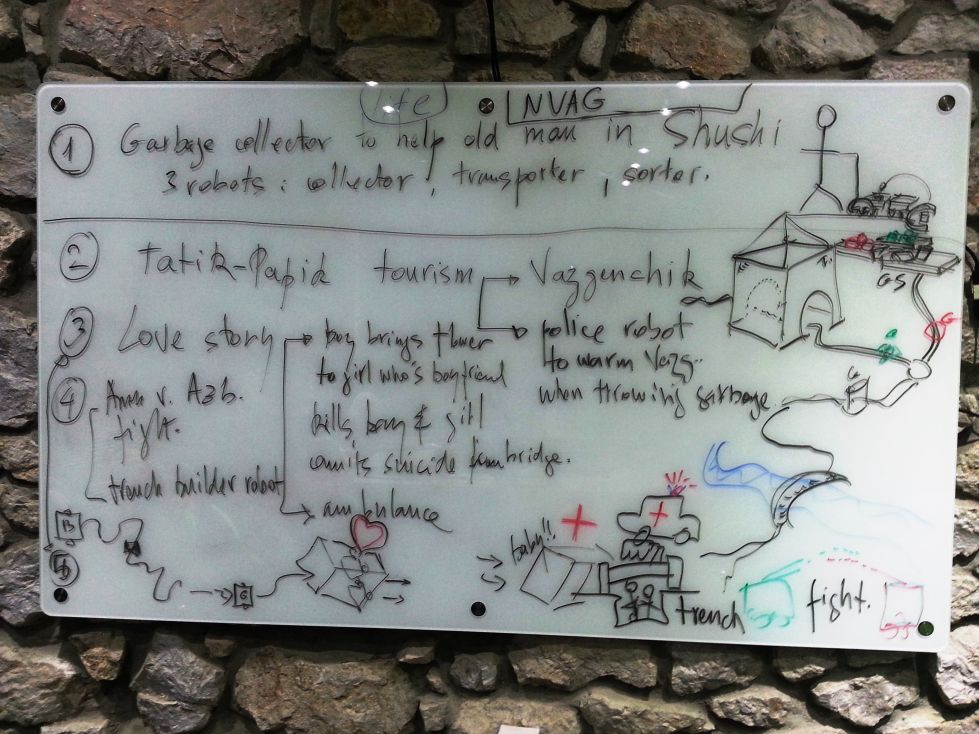 life
NVAG
① Garbage collector to help old man in Shushi
3 robots : collector, transporter, sorter.
② Tatik-Papik tourism Vazgenchik
③ Love story
boy brings flower
to girl who's boyfriend
kills boy & girl
comits suicide from bridge.
police robot
to warn Vazg..
when throwing garbage
④ Arm v. Azb.
fight.
trench builder robot
ambulance
⑤
B
G
baby!!
trench
fight.
GS
G
G
G